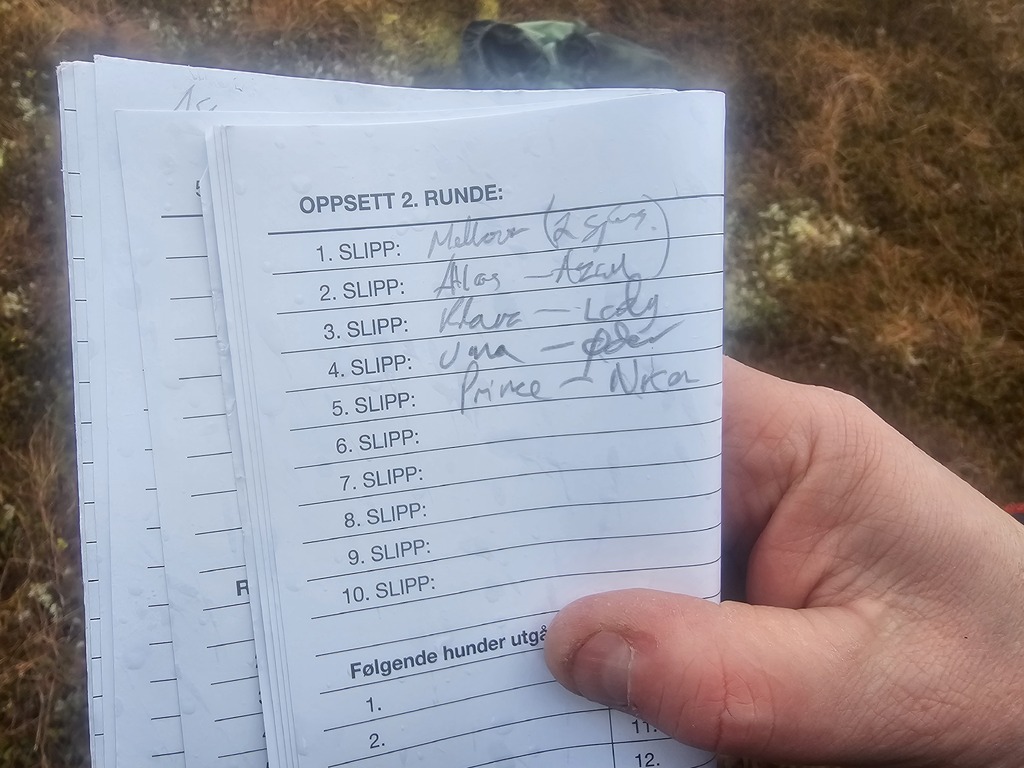 OPPSETT 2. RUNDE:
1. SLIPP: (2
2. SLIPP: Alas — Azan
3. SLIPP: Klara — Lady
4. SLIPP:
5. SLIPP: Prince — Nikon
6. SLIPP:
7. SLIPP:
8. SLIPP:
9. SLIPP:
10. SLIPP:
Følgende hunder utgå
1.
2.
11.
12.
R